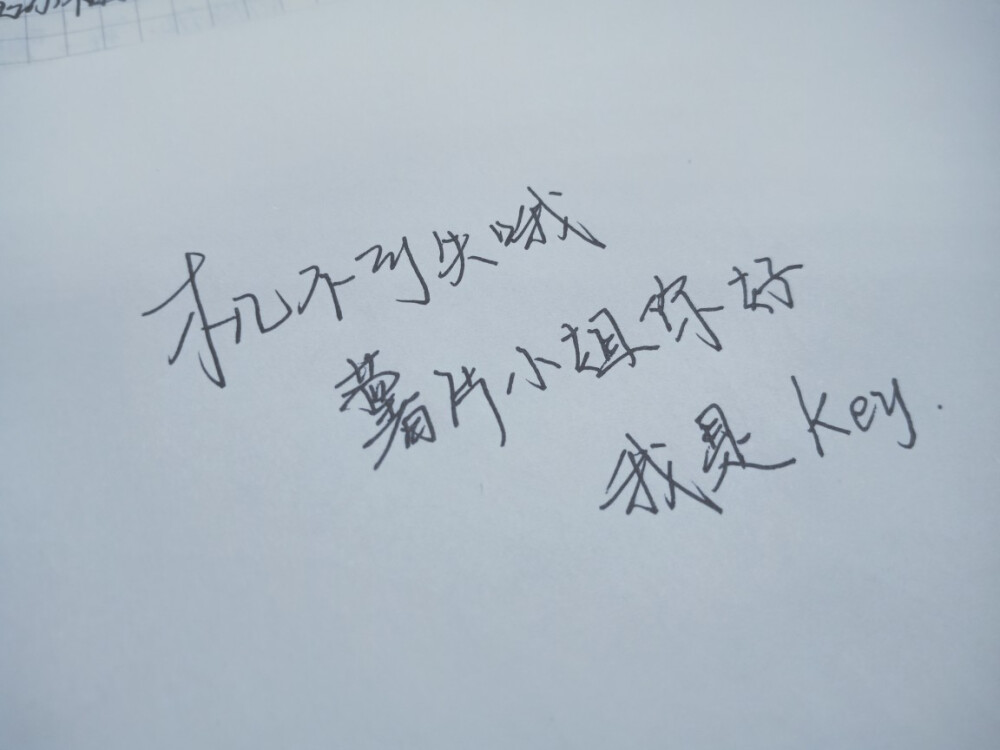 机不可失哦
薯片小姐你好
我是Key.